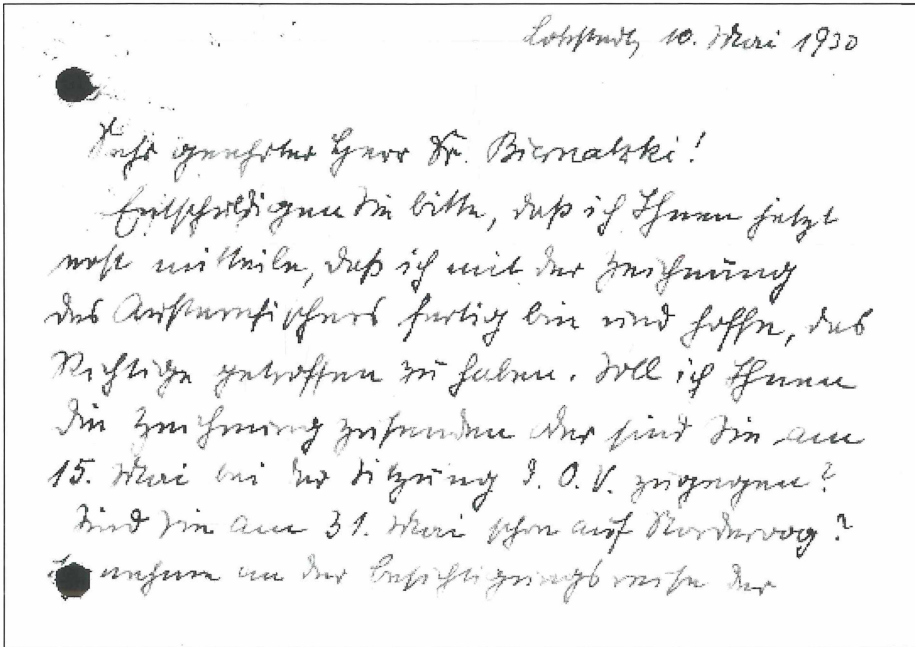 Lokstedt, 10. Mai 1930
Sehr geehrter Herr Dr. Biernatzki!
Entschuldigen Sie bitte, daß ich Ihnen jetzt
erst mitteile, daß ich mit der Zeichnung
des Austernfischers fertig bin und hoffe, das
Richtige getroffen zu haben. Soll ich Ihnen
die Zeichnung zusenden oder sind Sie am
15. Mai bei der Sitzung d. O. V. zugegen?
Sind Sie am 31. Mai schon auf Norderoog?
nehme an der Besichtigungsreise der